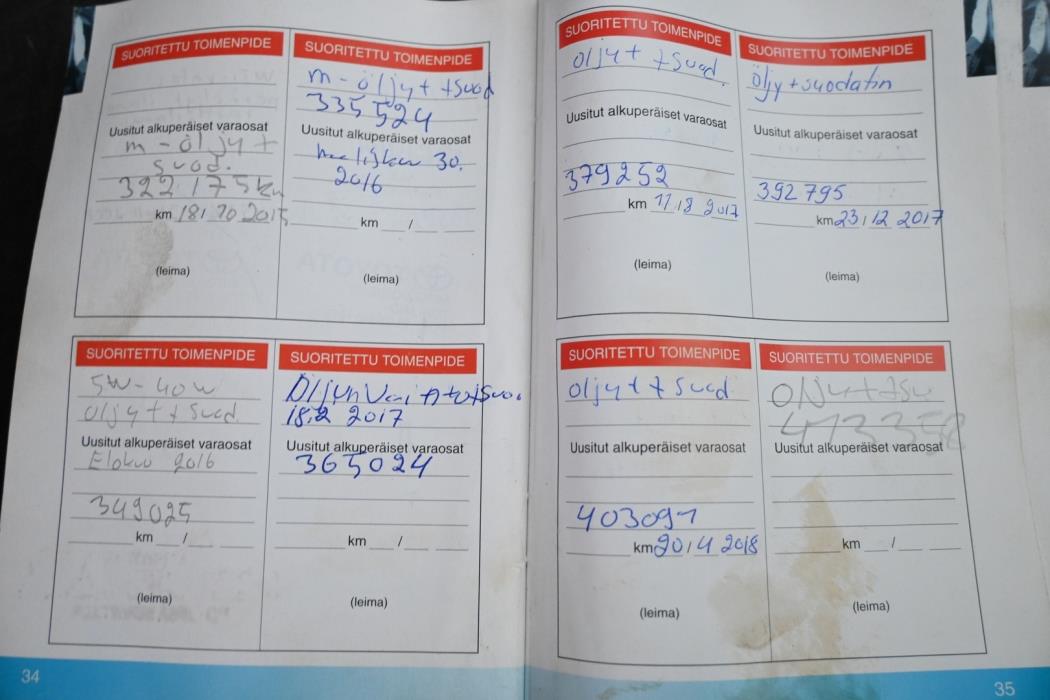 SUORITETTU TOIMENPIDE
Uusitut alkuperäiset varaosat
m - öljy +
suod.
322175 km
km 18/ 10 2015
(leima)
SUORITETTU TOIMENPIDE
m - öljyt +suod
335524
Uusitut alkuperäiset varaosat
30.
2016
km / 
(leima)
SUORITETTU TOIMENPIDE
5W-40W
öljyt + suod.
Uusitut alkuperäiset varaosat
Eloku 2016
349025
km /
(leima)
SUORITETTU TOIMENPIDE
18.2 2017
Uusitut alkuperäiset varaosat
365024
km /
(leima)
34
SUORITETTU TOIMENPIDE
öljyt +suod.
Uusitut alkuperäiset varaosat
379252
km 11/8 2017
(leima)
SUORITETTU TOIMENPIDE
öljy+suodatin
Uusitut alkuperäiset varaosat
392795
km 23/12 2017
(leima)
SUORITETTU TOIMENPIDE
öljyt + suod
Uusitut alkuperäiset varaosat
403091
km 20/4 2018
(leima)
SUORITETTU TOIMENPIDE
Öljyt+su
413358
Uusitut alkuperäiset varaosat
km /
(leima)
35